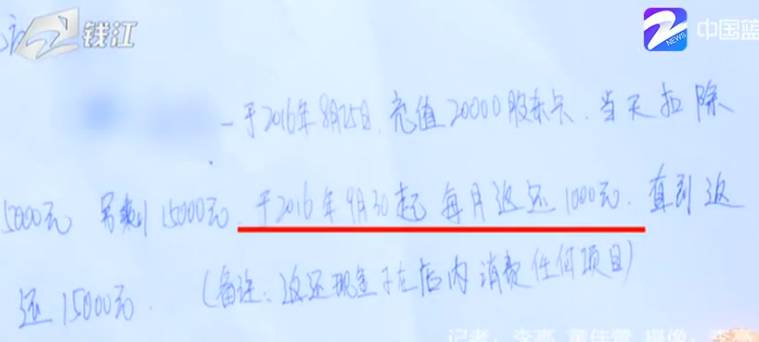 钱江
NEWS
中国蓝
于2016年8月25日,充值20000股东卡.当天扣除
5000元 另剩15000元.于2016年9月30起 每月返还1000元.直到返
还15000元. (备注:返还现金于在店内消费任何项目)
记者:李亮 黄伟雷 摄像:李亮